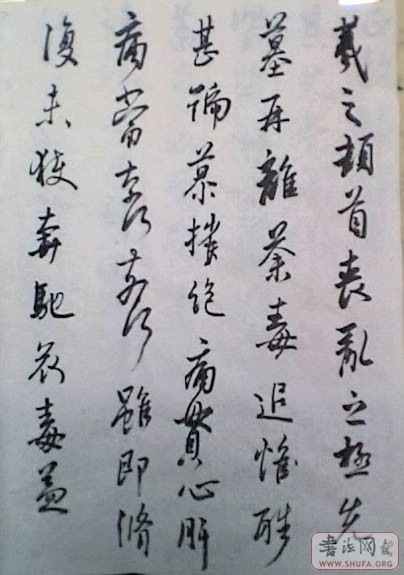 羲之頓首喪亂之極先
墓再離荼毒追惟酷
甚號慕摧絶痛貫心肝
痛當奈何奈何雖即脩
復未獲奔馳哀毒益
書法网
WWW.SHUFA.ORG